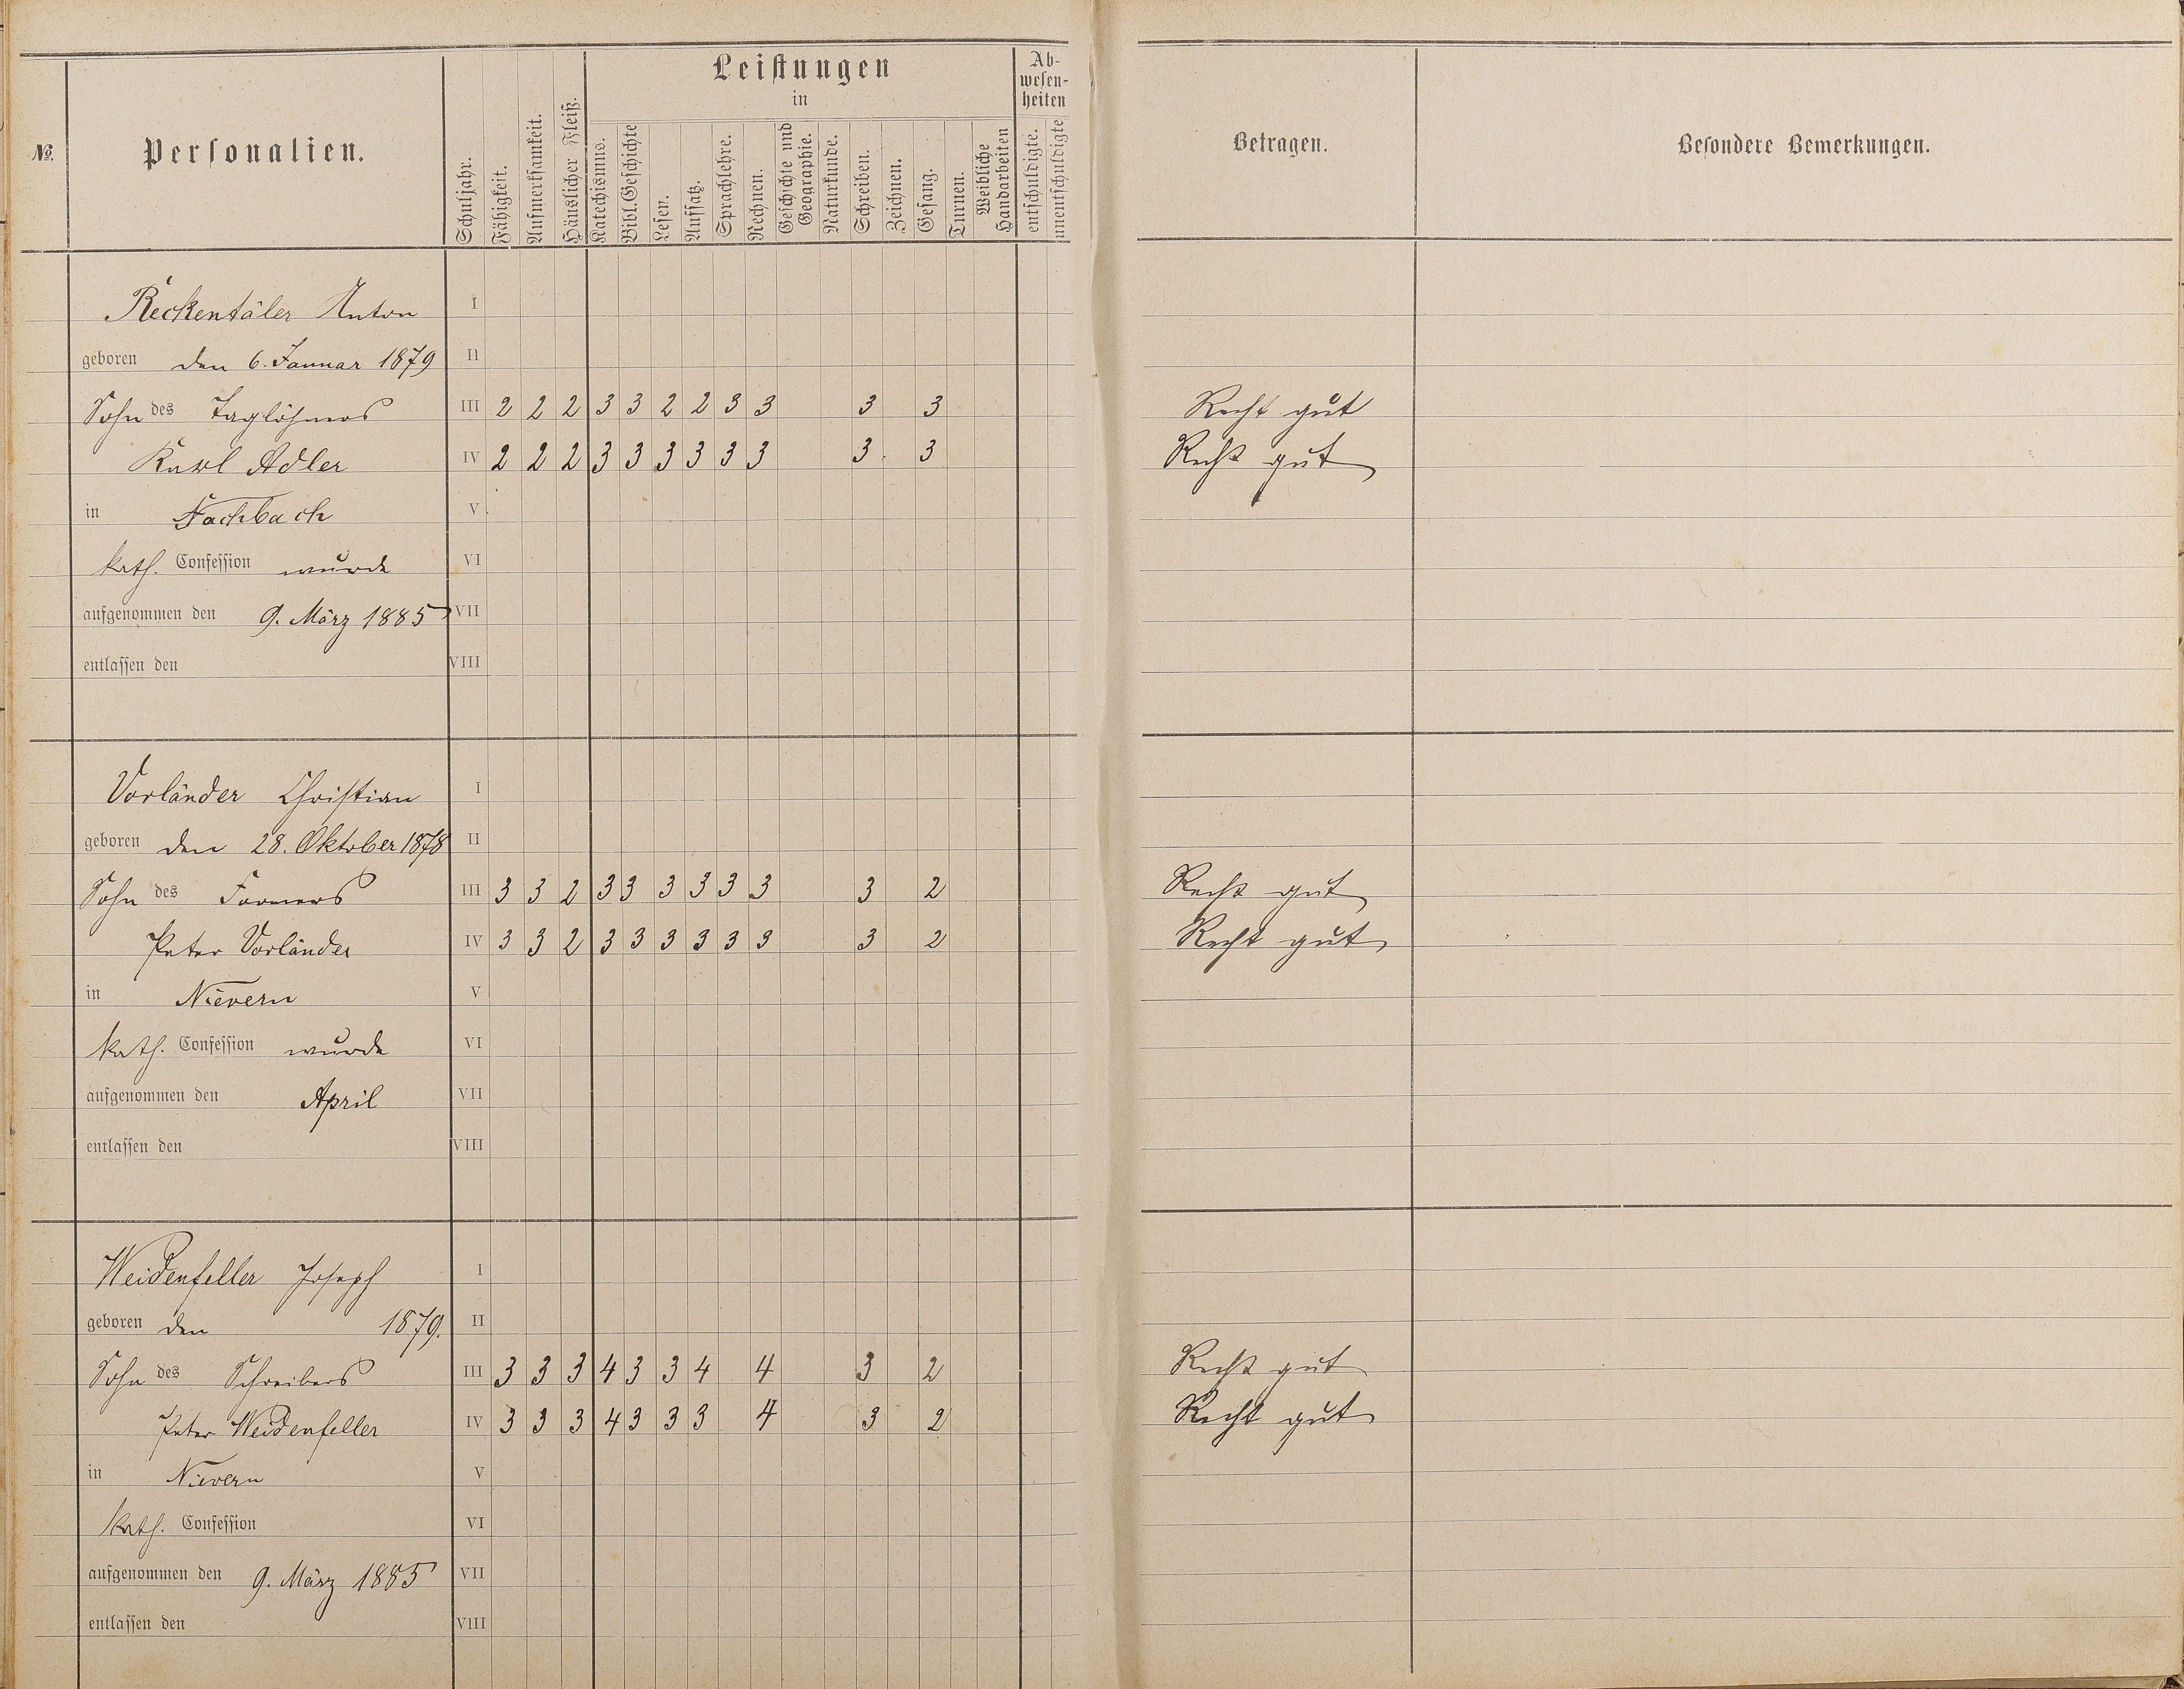 №.
Personalien.
Schuljahr.
Fähigkeit.
Aufmerksamkeit.
Häuslicher Fleiß.
Leistungen
in
Katechismus.
Bibl. Geschichte
Lesen.
Aufsatz.
Sprachlehre.
Rechnen.
Geschichte und Geographie.
Naturkunde.
Schreiben.
Zeichnen.
Gesang.
Turnen.
Weibliche Handarbeiten
Ab-
wesen-
heiten
entschuldigte.
unentschuldigte
Betragen.
Besondere Bemerkungen.
Reckentäler Anton I
geboren den 6. Januar 1879 II
Sohn des Taglöhners III 2 2 2 3 3 2 2 3 3 3 3 Recht gut
Karl Adler IV 2 2 2 3 3 3 3 3 3 3. 3 Recht gut
in Fachbach V
kath. Confession wurde VI
aufgenommen den 9. März 1885 VII
entlassen den VIII
Vorländer Christian I
geboren den 28. Oktober 1878 II
Sohn des Formers III 3 3 2 3 3 3 3 3 3 3 2 Recht gut
Peter Vorländer IV 3 3 2 3 3 3 3 3 3 3 2 Recht gut
in Nievern V
kath. Confession wurde VI
aufgenommen den April VII
entlassen den VIII
Weidenfeller Joseph I
geboren den 1879. II
Sohn des Schreibers III 3 3 3 4 3 3 4 4 3 2 Recht gut
Peter Weidenfeller IV 3 3 3 4 3 3 3 4 3 2 Recht gut
in Nievern V
kath. Confession VI
aufgenommen den 9. März 1885 VII
entlassen den VIII